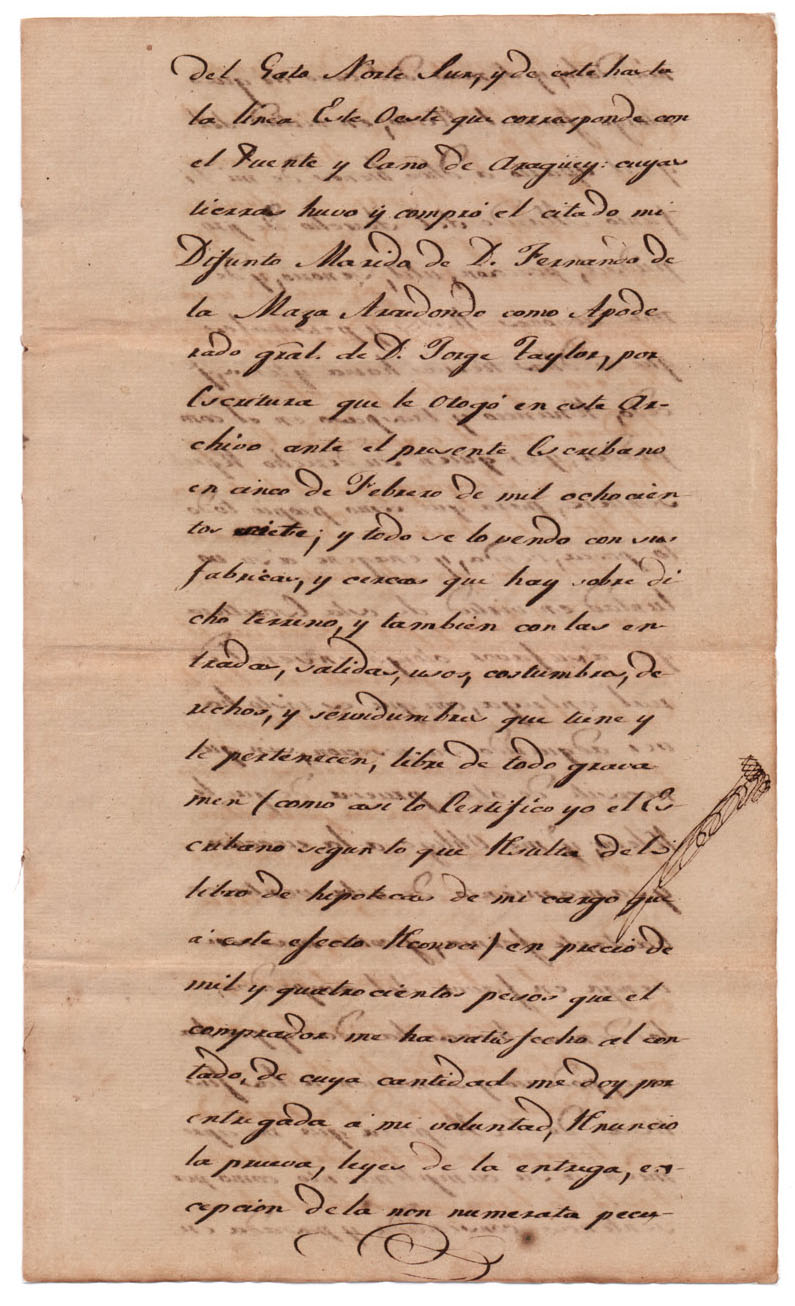 del Gato Norte Sur, y de este hasta
la linea Este Oeste que corresponde con
el Puente y Cano de Aragüey: cuyas
tierras huvo ÿ compró el citado mi
Difunto Marida de D. Fernando de
la Maza Arredondo como Apode
rado gral. de D. Jorge Taylor, por
Escritura que le otogó en este Ar-
chivo ante el presente Escribano
en cinco de Febrero de mil ochocien
tos siete; y todo se lo vendo con sus
fabricas, y cercas que hay sobre di
cho terreno, y tambien con las en
tradas, salidas, usos, costumbres, de
rechos, y servidumbres que tiene y
le pertenecen, libre de todo grava
men (como asi lo Certifico yo el Es-
cribano segun lo que Resulta del
libro de hipotecas de mi cargo que
á este efecto Reconoci) en precio de
mil y quatrocientos pesos que el
comprador me ha satisfecho al con
tado, de cuya cantidad me doy por
entregada á mi voluntad, Renuncio
la prueva, leyes de la entrega, ex-
cepcion de la non numerata pecu-